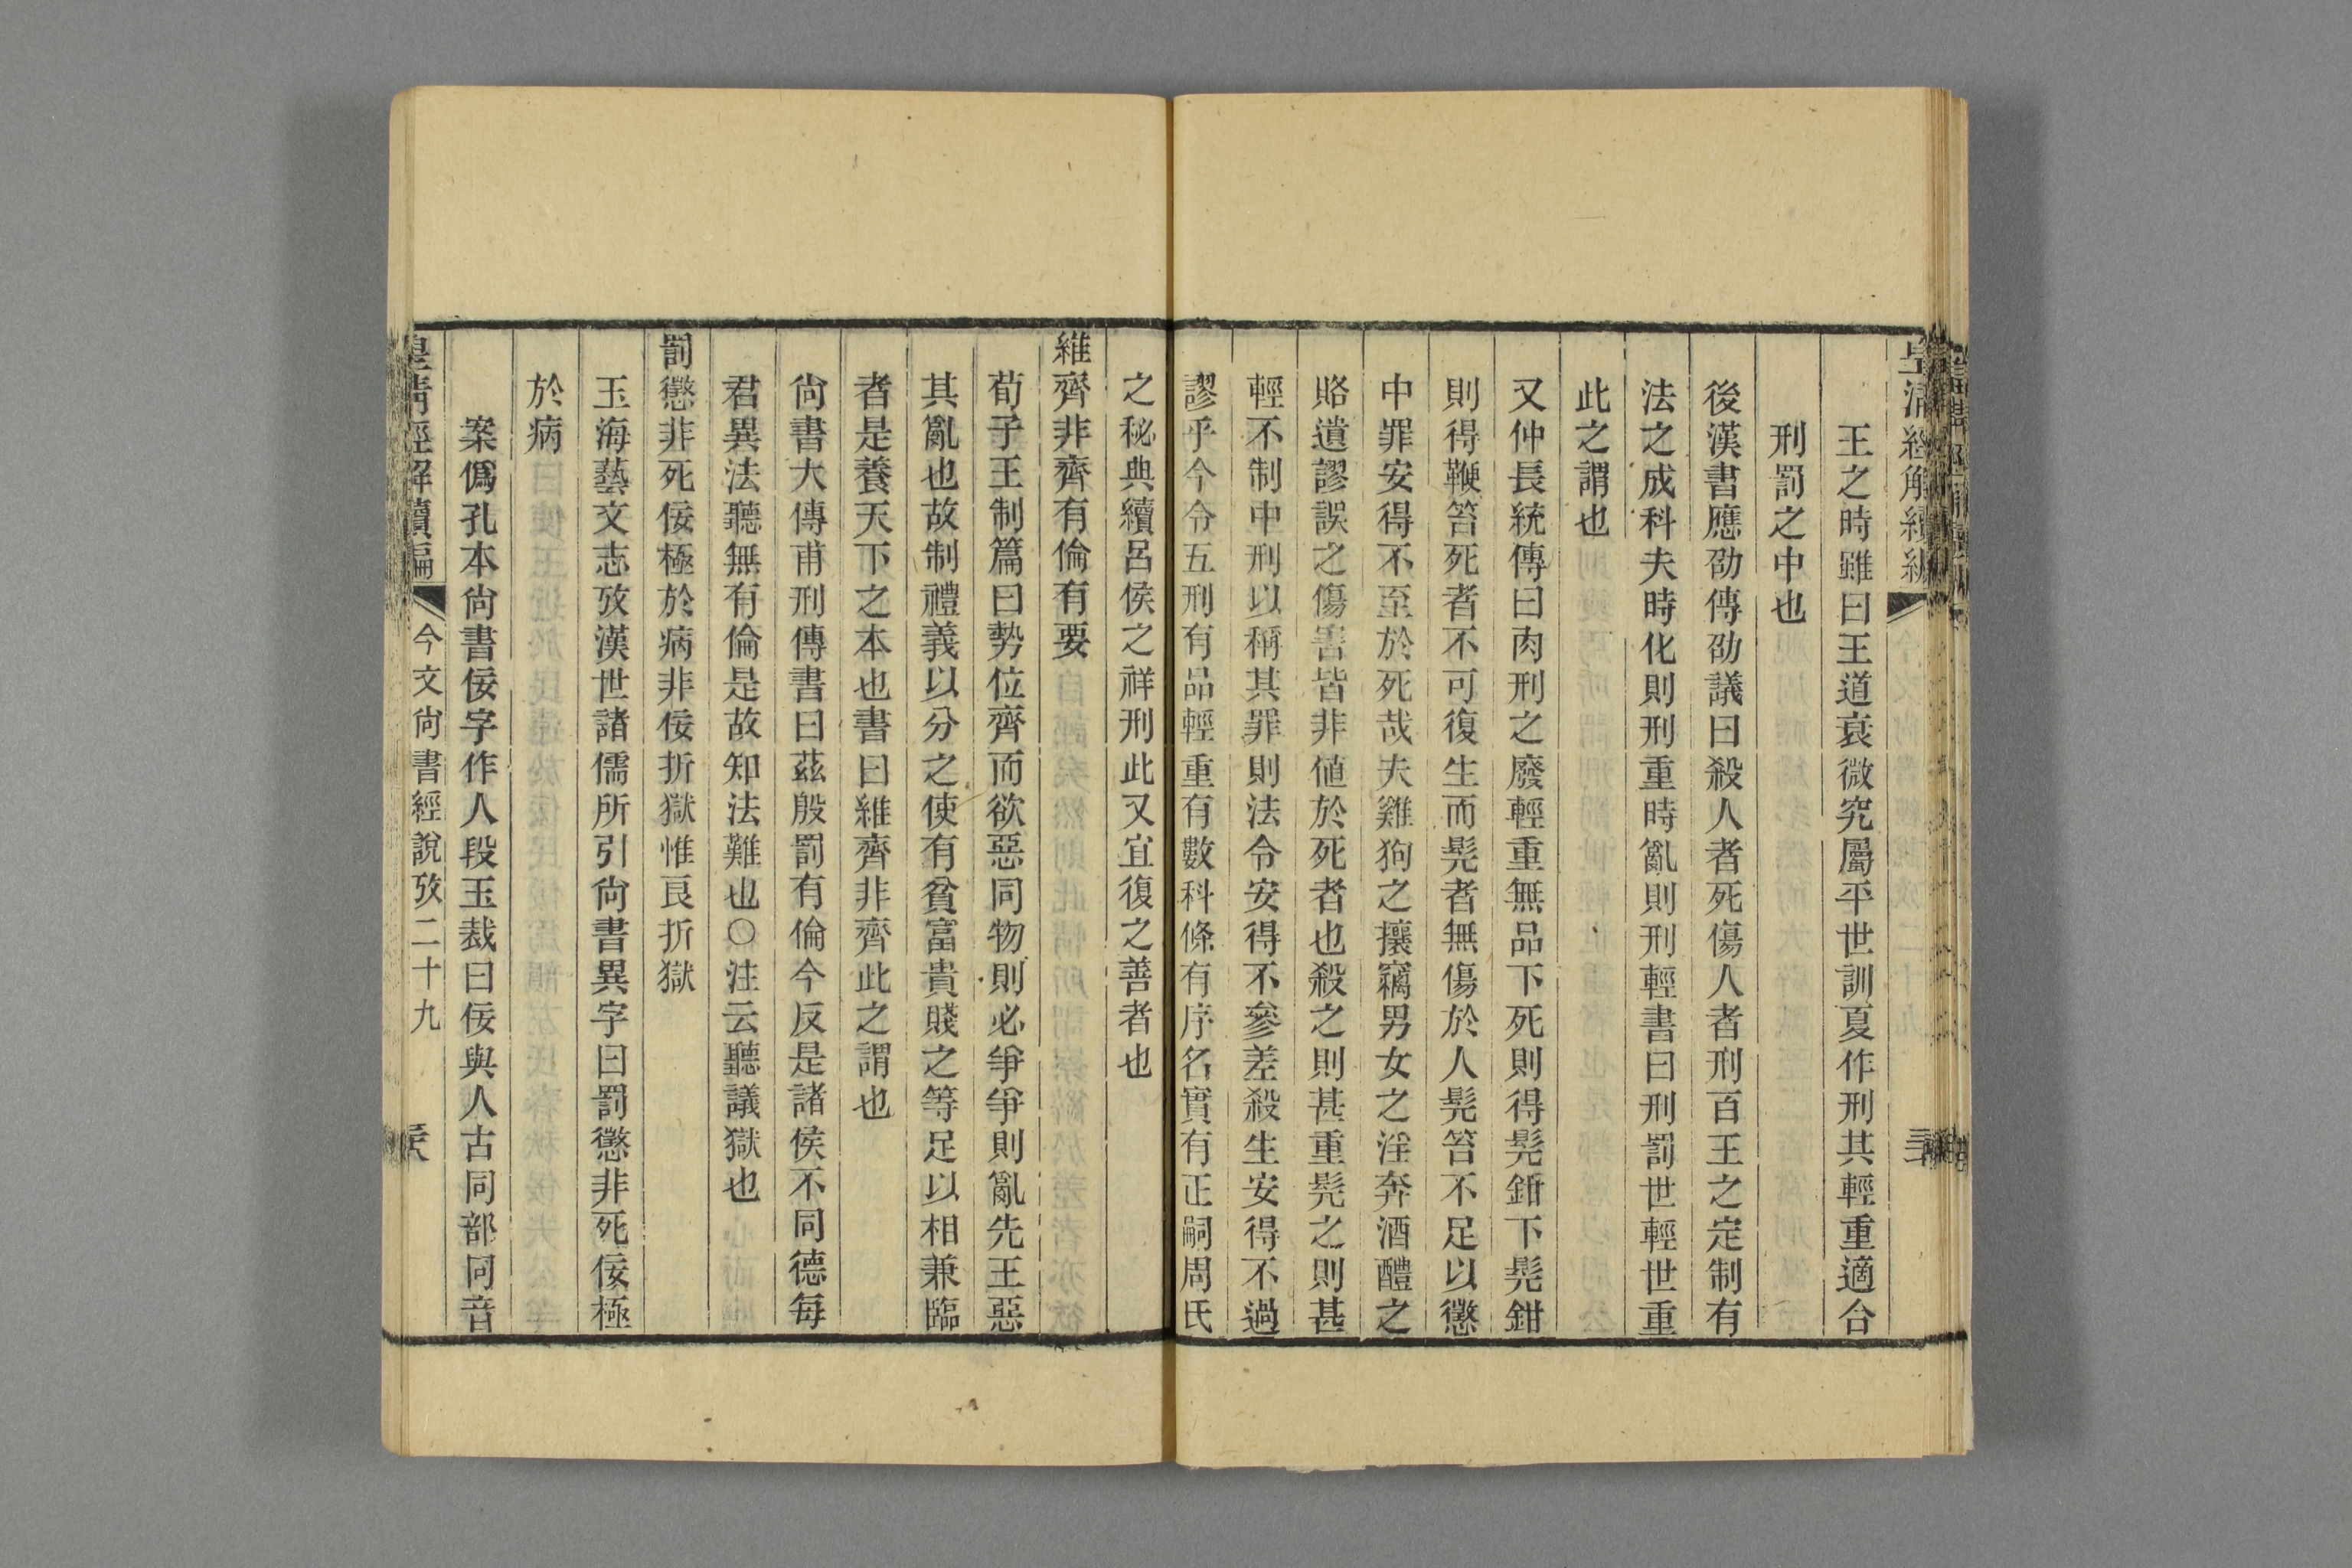 王之時雖曰王道衰微究屬平世訓夏作刑其輕重適合
刑罰之中也
後漢書應劭傳劭議曰殺人者死傷人者刑百王之定制有
法之成科夫時化則刑重時亂則刑輕書曰刑罰世輕世重
此之謂也
又仲長統傳曰肉刑之廢輕重無品下死則得髡鉗下髡鉗
則得鞭笞死者不可復生而髡者無傷於人髡笞不足以懲
中罪安得不至於死哉夫雞狗之攘竊男女之淫奔酒醴之
賂遺謬誤之傷害皆非値於死者也殺之則甚重髡之則甚
輕不制中刑以稱其罪則法令安得不參差殺生安得不過
謬乎今令五刑有品輕重有數科條有序名實有正嗣周氏
之秘典續呂侯之祥刑此又宜復之善者也
維齊非齊有倫有要
荀子王制篇曰勢位齊而欲惡同物則必爭爭則亂先王惡
其亂也故制禮義以分之使有貧富貴賤之等足以相兼臨
者是養天下之本也書曰維齊非齊此之謂也
尙書大傳甫刑傳書曰茲殷罰有倫今反是諸侯不同德每
君異法聽無有倫是故知法難也〇注云聽議獄也
罰懲非死佞極於病非佞折獄惟良折獄
玉海藝文志攷漢世諸儒所引尙書異字曰罰懲非死佞極
於病
案僞孔本尙書佞字作人段玉裁曰佞與人古同部同音
皇淸經解續編
今文尙書經說攷二十九